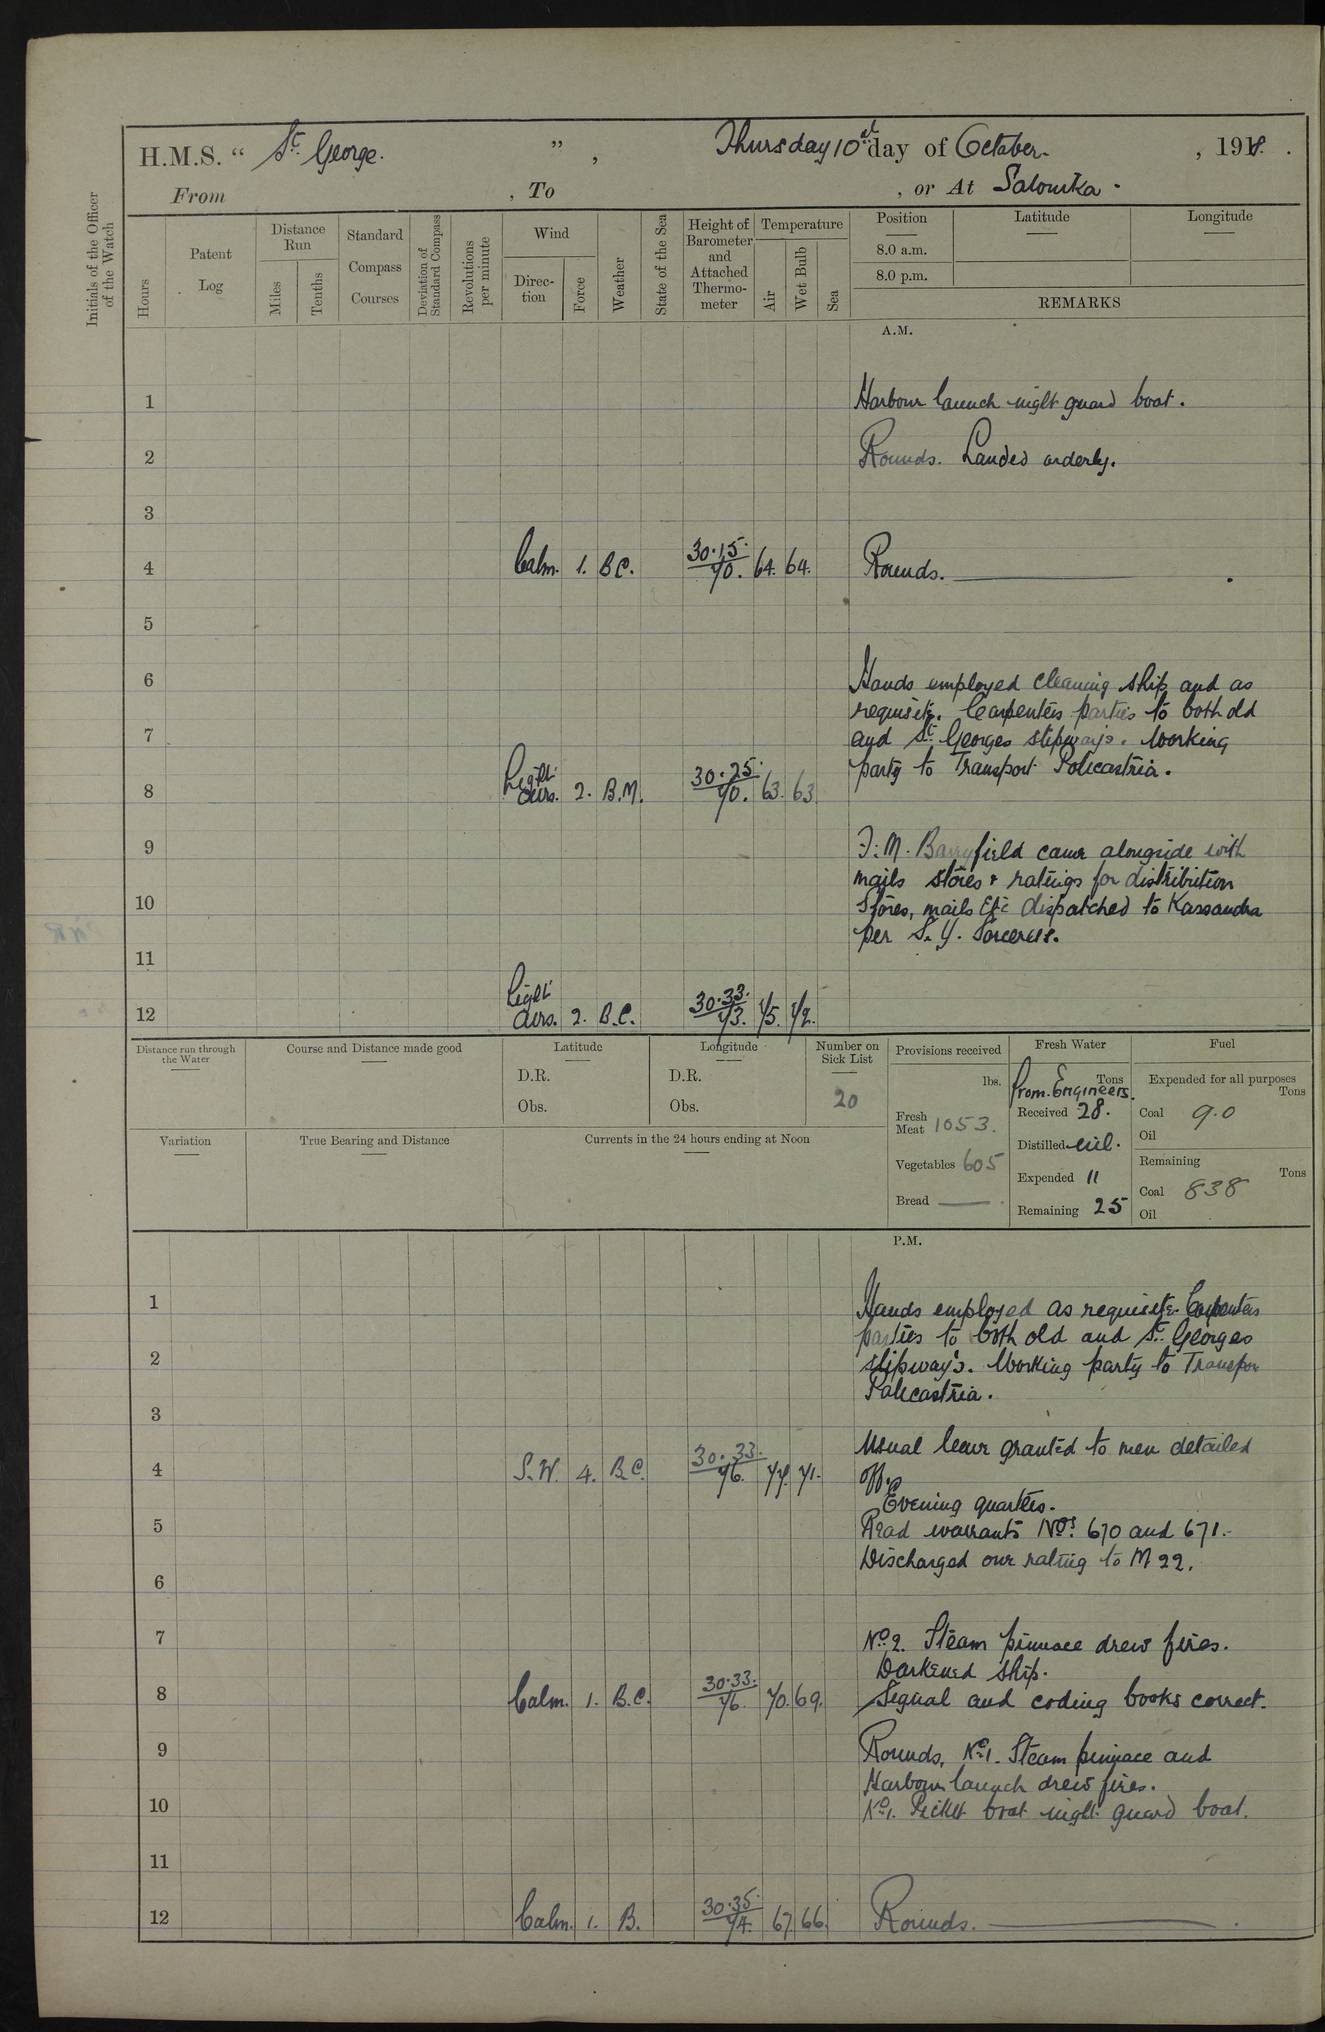 H.M.S. “ St. George. ” , Thursday 10th day of October. , 1918.
From , To , or At Salonika.
Initials of the Officer of the Watch
Hours
Patent Log
Distance Run
Miles
Tenths
Standard Compass Courses
Deviation of Standard Compass
Revolutions per minute
Wind
Direction
Force
Weather
State of the Sea
Height of Barometer and Attached Thermometer
Temperature
Air
Wet Bulb
Sea
Position Latitude Longitude
8.0 a.m.
8.0 p.m.
REMARKS
A.M.
1 Harbour launch night guard boat.
2 Rounds. Landed orderly.
3
4 Calm. 1. B.C. 30.15. 70. 64. 64. Rounds.
5
6 Hands employed cleaning ship and as
requisite. Carpenters parties to both old
7 and St. Georges slipways. Working
party to Transport Policastria.
8 Light airs. 2. B.M. 30.25. 70. 63. 63.
9 F.M. Barryfield came alongside with
mails stores & ratings for distribution
10 Stores, mails etc dispatched to Kassandra
per S.Y. Sorceress.
11
12 Light airs. 2. B.C. 30.33. 73. 75. 72.
Distance run through the Water
Course and Distance made good
Latitude
D.R.
Obs.
Longitude
D.R.
Obs.
Number on Sick List
20
Provisions received
lbs.
Fresh Meat 1053.
Vegetables 605
Bread —
Fresh Water
Tons
From Engineers.
Received 28.
Distilled nil.
Expended 11
Remaining 25
Fuel
Expended for all purposes
Tons
Coal 90
Oil
Remaining
Tons
Coal 838
Oil
Variation
True Bearing and Distance
Currents in the 24 hours ending at Noon
P.M.
1 Hands employed as requisite. Carpenters
parties to both old and St. Georges
2 slipway's. Working party to Transpor
Policastria.
3
Usual leave granted to men detailed
4 S.W. 4. B.C. 30.33. 76. 77. 71. off.
Evening quarters.
5 Read warrants Nos. 670 and 671.
Discharged one rating to M 22.
6
7 No. 2. Steam pinnace drew fires.
Darkened ship.
8 Calm. 1. B.C. 30.33. 76. 70. 69. Signal and coding books correct.
9 Rounds, No. 1. Steam pinnace and
Harbour launch drew fires.
10 No. 1. Picket boat night guard boat.
11
12 Calm. 1. B. 30.35. 74. 67. 66. Rounds.